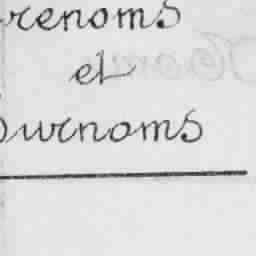 renoms
et
urnoms